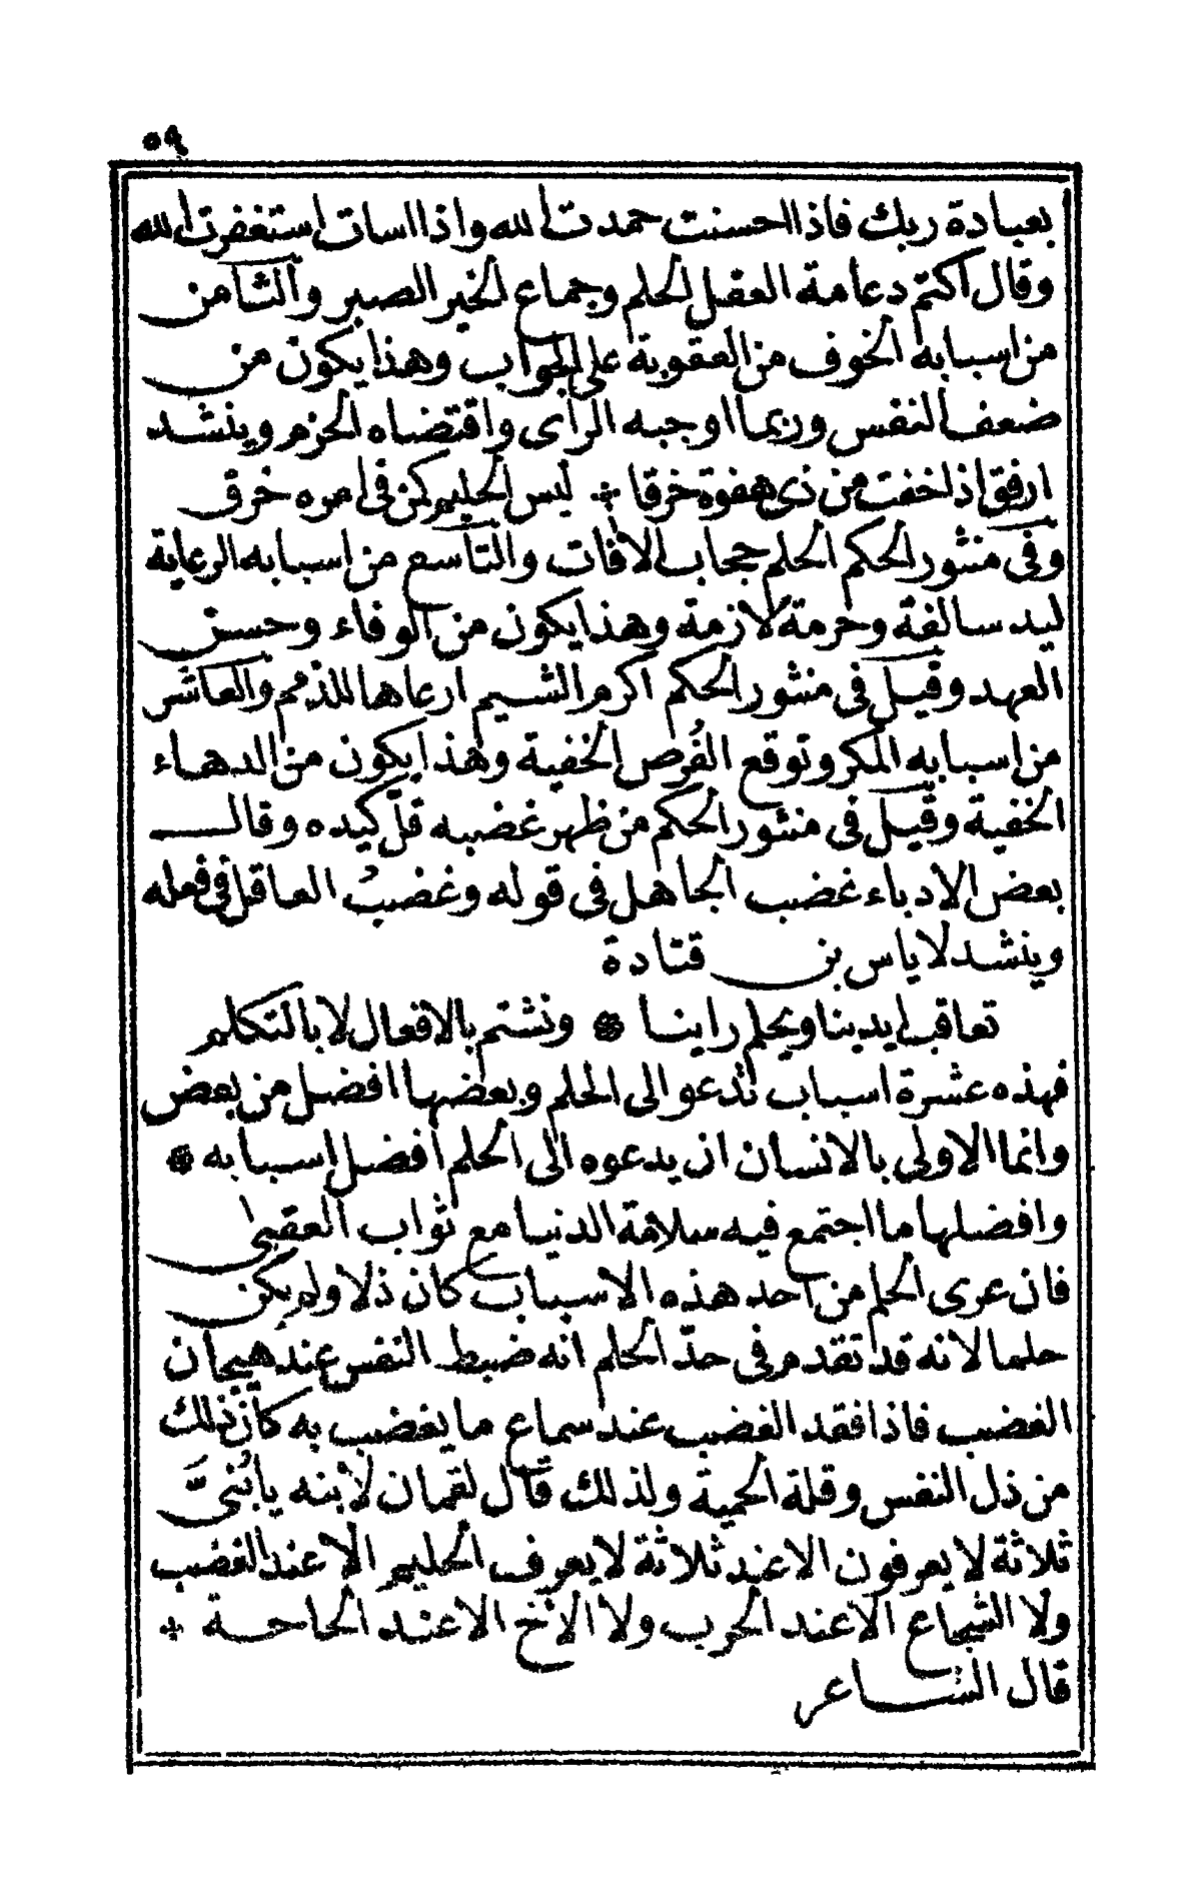 ٥٩
بعبادة ربك فاذا احسنت حمدت الله واذا اسات استغفرت الله
وقال اكثم دعامة العقل الحلم وجماع الخير الصبر والثامن
من اسبابه الخوف من العقوبة على الجواب وهذا يكون من
ضعف النفس وربما اوجبه الراى واقتضاه الحزم وينشد
ارفق اذا خفت من ذى هفوة خرقا ÷ ليس الحليم كمن فى امره خرق
وفى منثور الحكم الحلم حجاب الافات والتاسع من اسبابه الرعاية
ليد سالفة وحرمة لازمة وهذا يكون من الوفاء وحسن
العهد وقيل فى منثور الحكم اكرم الشيم ارعاها للذمم والعاشر
من اسبابه المكر وتوقع الفُرص الخفية وهذا يكون من الدهاء
الخفية وقيل فى منثور الحكم من ظهر غضبه قلّ كيده وقال
بعض الادباء غضب الجاهل فى قوله وغضبُ العاقل فى فعله
وينشد لاياس بن قتادة
تعاقب ايدينا ويحلم راينا ۞ ونشتم بالافعال لا بالتكلم
فهذه عشرة اسباب تدعو الى الحلم وبعضها افضل من بعض
وانما الاولى بالانسان ان يدعوه الى الحلم افضل اسبابه ۞
وافضلها ما اجتمع فيه سلامة الدنيا مع ثواب العقبى
فان عرى الحلم من احد هذه الاسباب كان ذلا ولم يكن
حلما لانه قد تقدم فى حدّ الحلم انه ضبط النفس عند هيجان
الغضب فاذا فقد الغضب عند سماع ما يغضب به كان ذلك
من ذل النفس وقلة الحمية ولذلك قال لقمان لابنه يا بُنىَّ
ثلاثة لا يعرفون الا عند ثلاثة لا يعرف الحليم الا عند الغضب
ولا الشجاع الا عند الحرب ولا الاخ الا عند الحاجة ÷
قال الشاعر